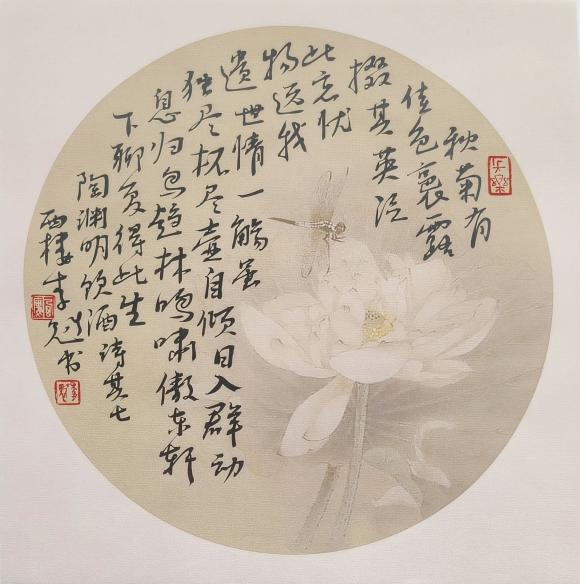 秋菊有
佳色裛露
掇其英泛
此忘忧
物远我
遗世情一觞虽
独尽杯尽壶自倾日入群动
息归鸟趋林鸣啸傲东轩
下聊复得此生
陶渊明饮酒诗其七
西楼李书